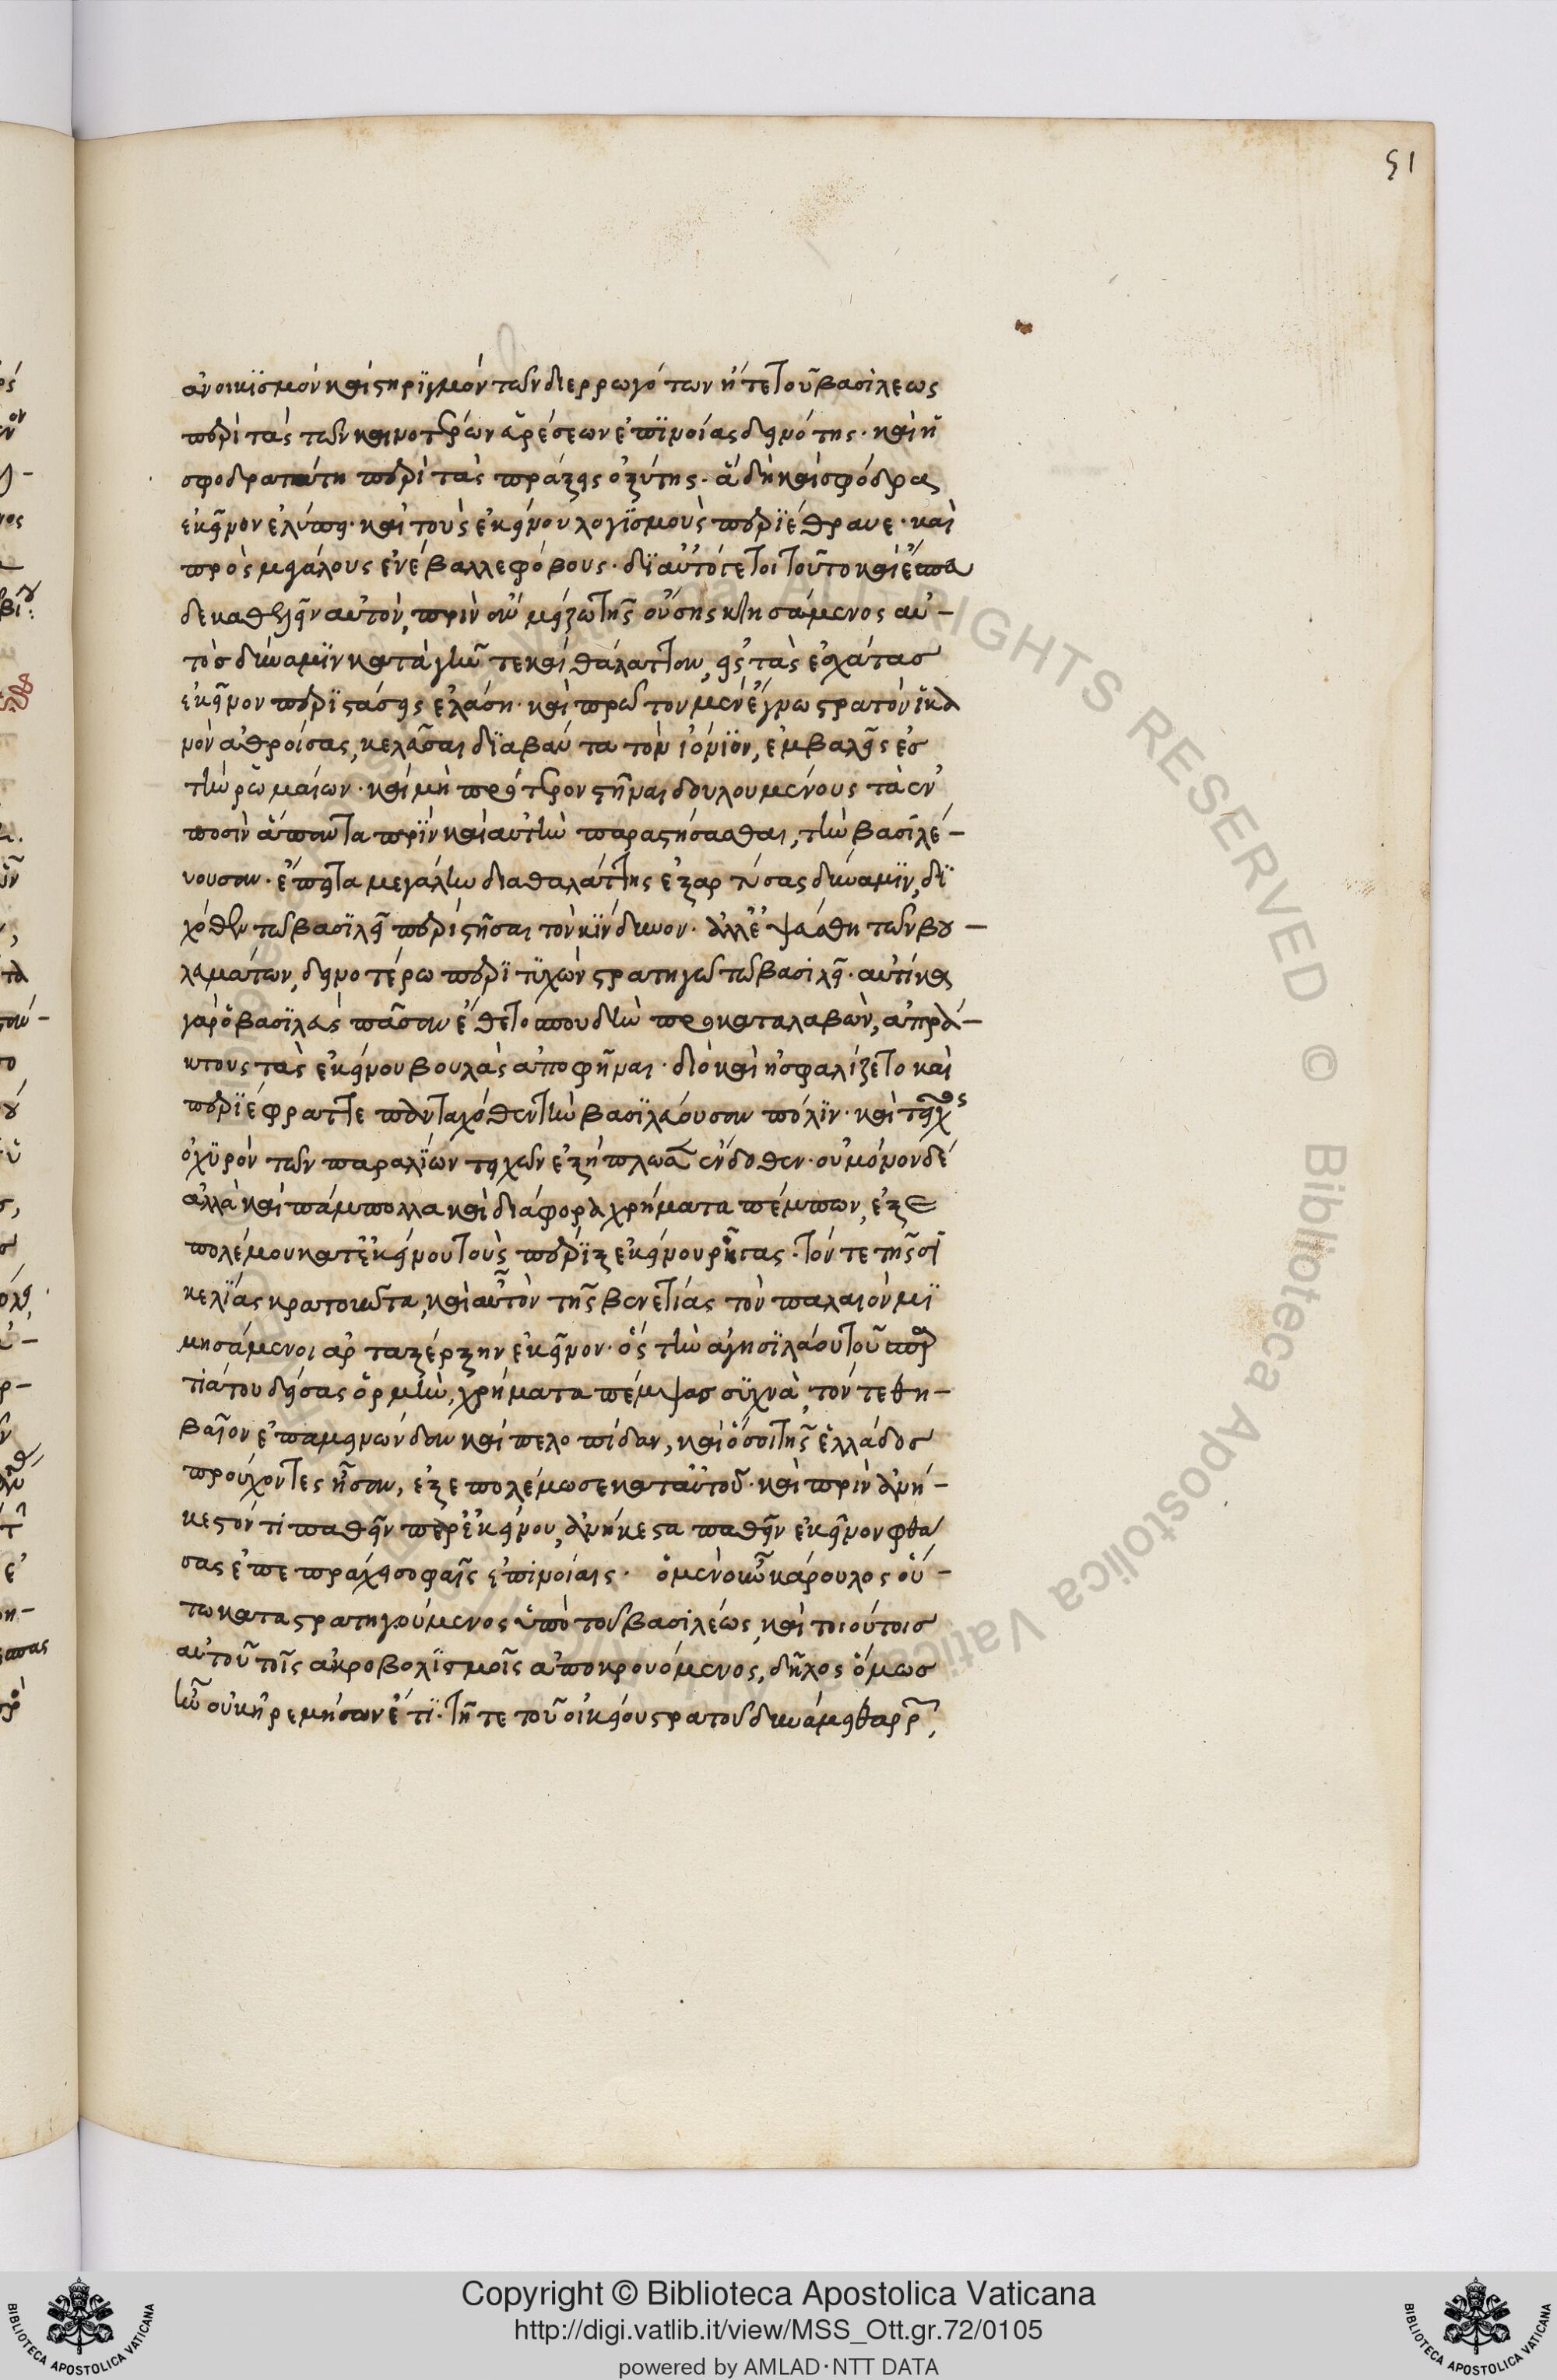 51
ἀνοικισμὸν καὶ στηριγμὸν τῶν διερρωγότων ἥ τε τοῦ βασιλέως
περὶ τὰς τῶν καινοτέρων αἱρέσεων ἐπινοίας δεινότης· καὶ ἡ
σφοδροτάτη περὶ τὰς πράξεις ὀξύτης· ἃ δὴ καὶ σφόδρα
ἐκεῖνον ἐλύπει· καὶ τοὺς ἐκείνου λογισμοὺς περιέθραυε· καὶ
πρὸς μεγάλους ἐνέβαλλε φόβους· δι αὐτό γέ τοι τοῦτο καὶ ἔσπευ
δε καθελεῖν αὐτὸν, πρὶν ἢ μείζω τῆς οὔσης κτησάμενος αὐ-
τὸς δύναμιν κατὰ γῆν τε καὶ θάλατταν, εἰς τὰς ἐσχάτας
ἐκεῖνον περιστάσεις ἐλάσῃ· καὶ πρῶτον μὲν ἔγνω στρατὸν ἱκα
νὸν ἀθροίσας, κελεῦσαι διαβάντα τὸν ἰόνιον, ἐμβαλεῖν ἐς
τὴν ῥωμαίων· καὶ μὴ πρότερον στῆναι δουλουμένους τὰ ἐν
ποσὶν ἅπαντα πρὶν καὶ αὐτὴν παραστήσασθαι, τὴν βασιλεύ-
ουσαν· ἔπειτα μεγάλην διὰ θαλάττης ἐξαρτύσας δύναμιν, δι
χόθεν τῷ βασιλεῖ περιστῆσαι τὸν κίνδυνον· ἀλλ' ἐψεύσθη τῶν βου-
λευμάτων, δεινοτέρῳ περιτυχὼν στρατηγῷ τῷ βασιλεῖ· αὐτίκα
γὰρ ὁ βασιλεὺς πᾶσαν ἔθετο σπουδὴν προκαταλαβὼν, ἀπρά-
κτους τὰς ἐκείνου βουλὰς ἀποφῆναι· διὸ καὶ ἠσφαλίζετο καὶ
περιέφραττε πανταχόθεν τὴν βασιλεύουσαν πόλιν· καὶ τεῖχος
ὀχυρὸν τῶν παραλίων τειχῶν ἐξήπλωσεν ἔνδοθεν· οὐ μόνον δὲ
ἀλλὰ καὶ πάμπολλα καὶ διάφορα χρήματα πέμπων, ἐξε
πολέμου κατ' ἐκείνου τοὺς περὶξ ἐκείνου ῥῆγας· τόν τε τῆς σι
κελίας κρατοῦντα, καὶ αὐτὸν τῆς βενετίας τὸν παλαιὸν μι
μησάμενοι ἀρταξέρξην ἐκεῖνον· ὃς τὴν ἀγησιλάου τοῦ σπαρ
τιάτου δείσας ὁρμὴν, χρήματα πέμψας συχνὰ, τόν τε θη-
βαῖον ἐπαμεινώνδαν καὶ πελοπίδαν, καὶ ὅσοι τῆς ἑλλάδος
προύχοντες ἦσαν, ἐξεπολέμωσε κατ' αὐτοῦ· καὶ πρὶν ἀνή-
κεστόν τι παθεῖν παρ' ἐκείνου, ἀνήκεστα παθεῖν ἐκεῖνον φθά
σας ἐπεπράχει σοφαῖς ἐπινοίαις· ὁ μὲν οὖν κάρουλος οὕ-
τω καταστρατηγούμενος ὑπὸ τοῦ βασιλέως, καὶ τοιούτοις
αὐτοῦ τοῖς ἀκροβολισμοῖς ἀποκρουόμενος, δῆλος ὅμως
ἦν οὐκ ἠρεμήσων ἔτι· τῇ τε τοῦ οἰκείου στρατοῦ δυνάμει θαρρῶν,
Copyright © Biblioteca Apostolica Vaticana
http://digi.vatlib.it/view/MSS_Ott.gr.72/0105
powered by AMLAD·NTT DATA